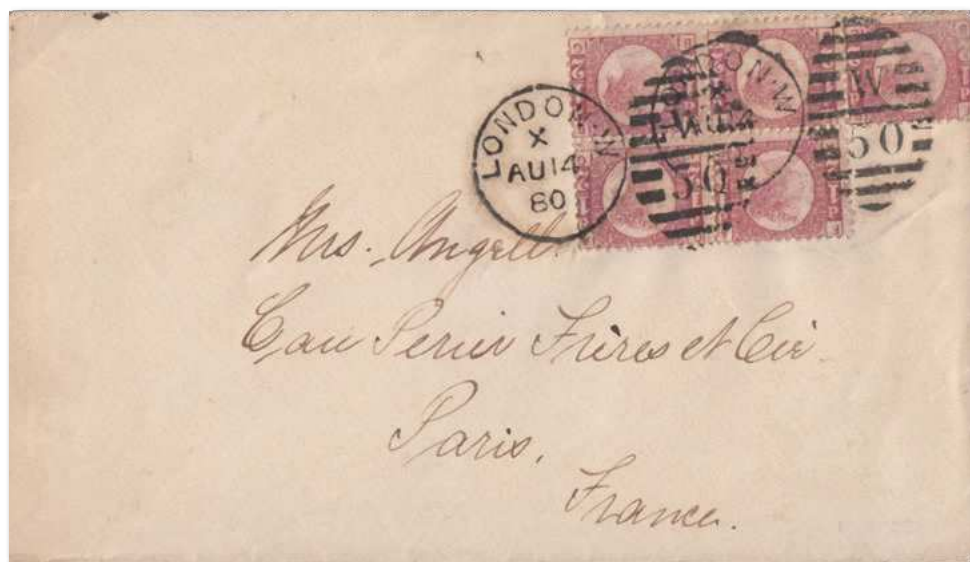 LONDON·W
X
AU14
80
LONDON·W
X
W
50
W
50
Mrs. Angell
Cau Perier Frères et Cie
Paris.
France.